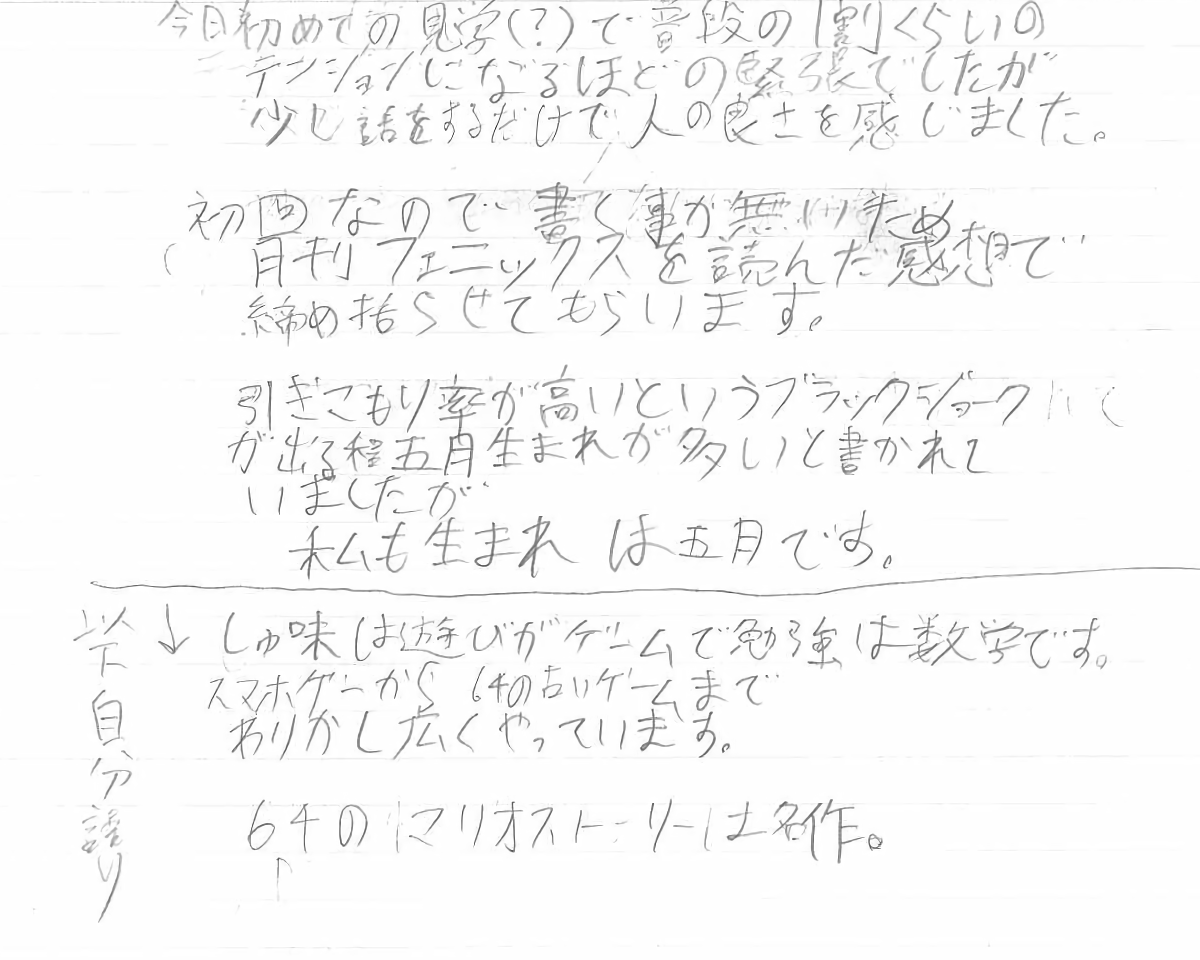 今日初めての見学(?)で普段の1割くらいの
テンションになるほどの緊張でしたが
少し話をするだけで人の良さを感じました。
初回なので書く事が無いため
月刊フェニックスを読んだ感想で
締め括らせてもらいます。
引きこもり率が高いというブラックジョーク
が出る程五月生まれが多いと書かれて
いましたが
私も生まれは五月です。
以下自分語り
↓ しゅ味は遊びがゲームで勉強は数学です。
スマホゲーから64の古いゲームまで
わりかし広くやっています。
64のマリオストーリーは名作。